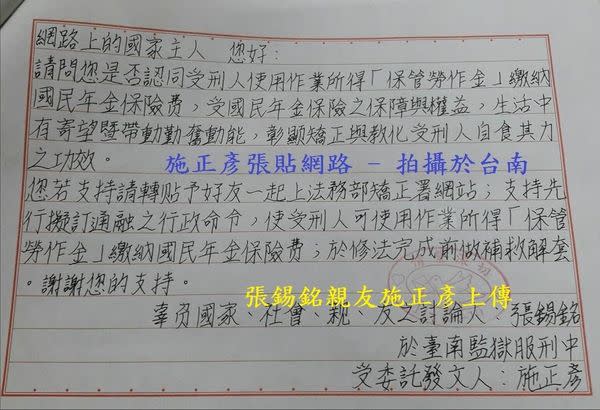 網路上的國家主人 您好:
請問您是否認同受刑人使用作業所得「保管勞作金」繳納
國民年金保險費，受國民年金保險之保障與權益，生活中
有寄望暨帶動勤奮動能，彰顯矯正與教化受刑人自食其力
之功效。
施正彥張貼網路 - 拍攝於台南
您若支持請轉貼予好友一起上法務部矯正署網站；支持先
行擬訂通融之行政命令，使受刑人可使用作業所得「保管
勞作金」繳納國民年金保險費；於修法完成前做補救解套
。謝謝您的支持。
張錫銘親友施正彥上傳
辜負國家、社會、親、友之討論人：張錫銘
於臺南監獄服刑中
受委託發文人：施正彥